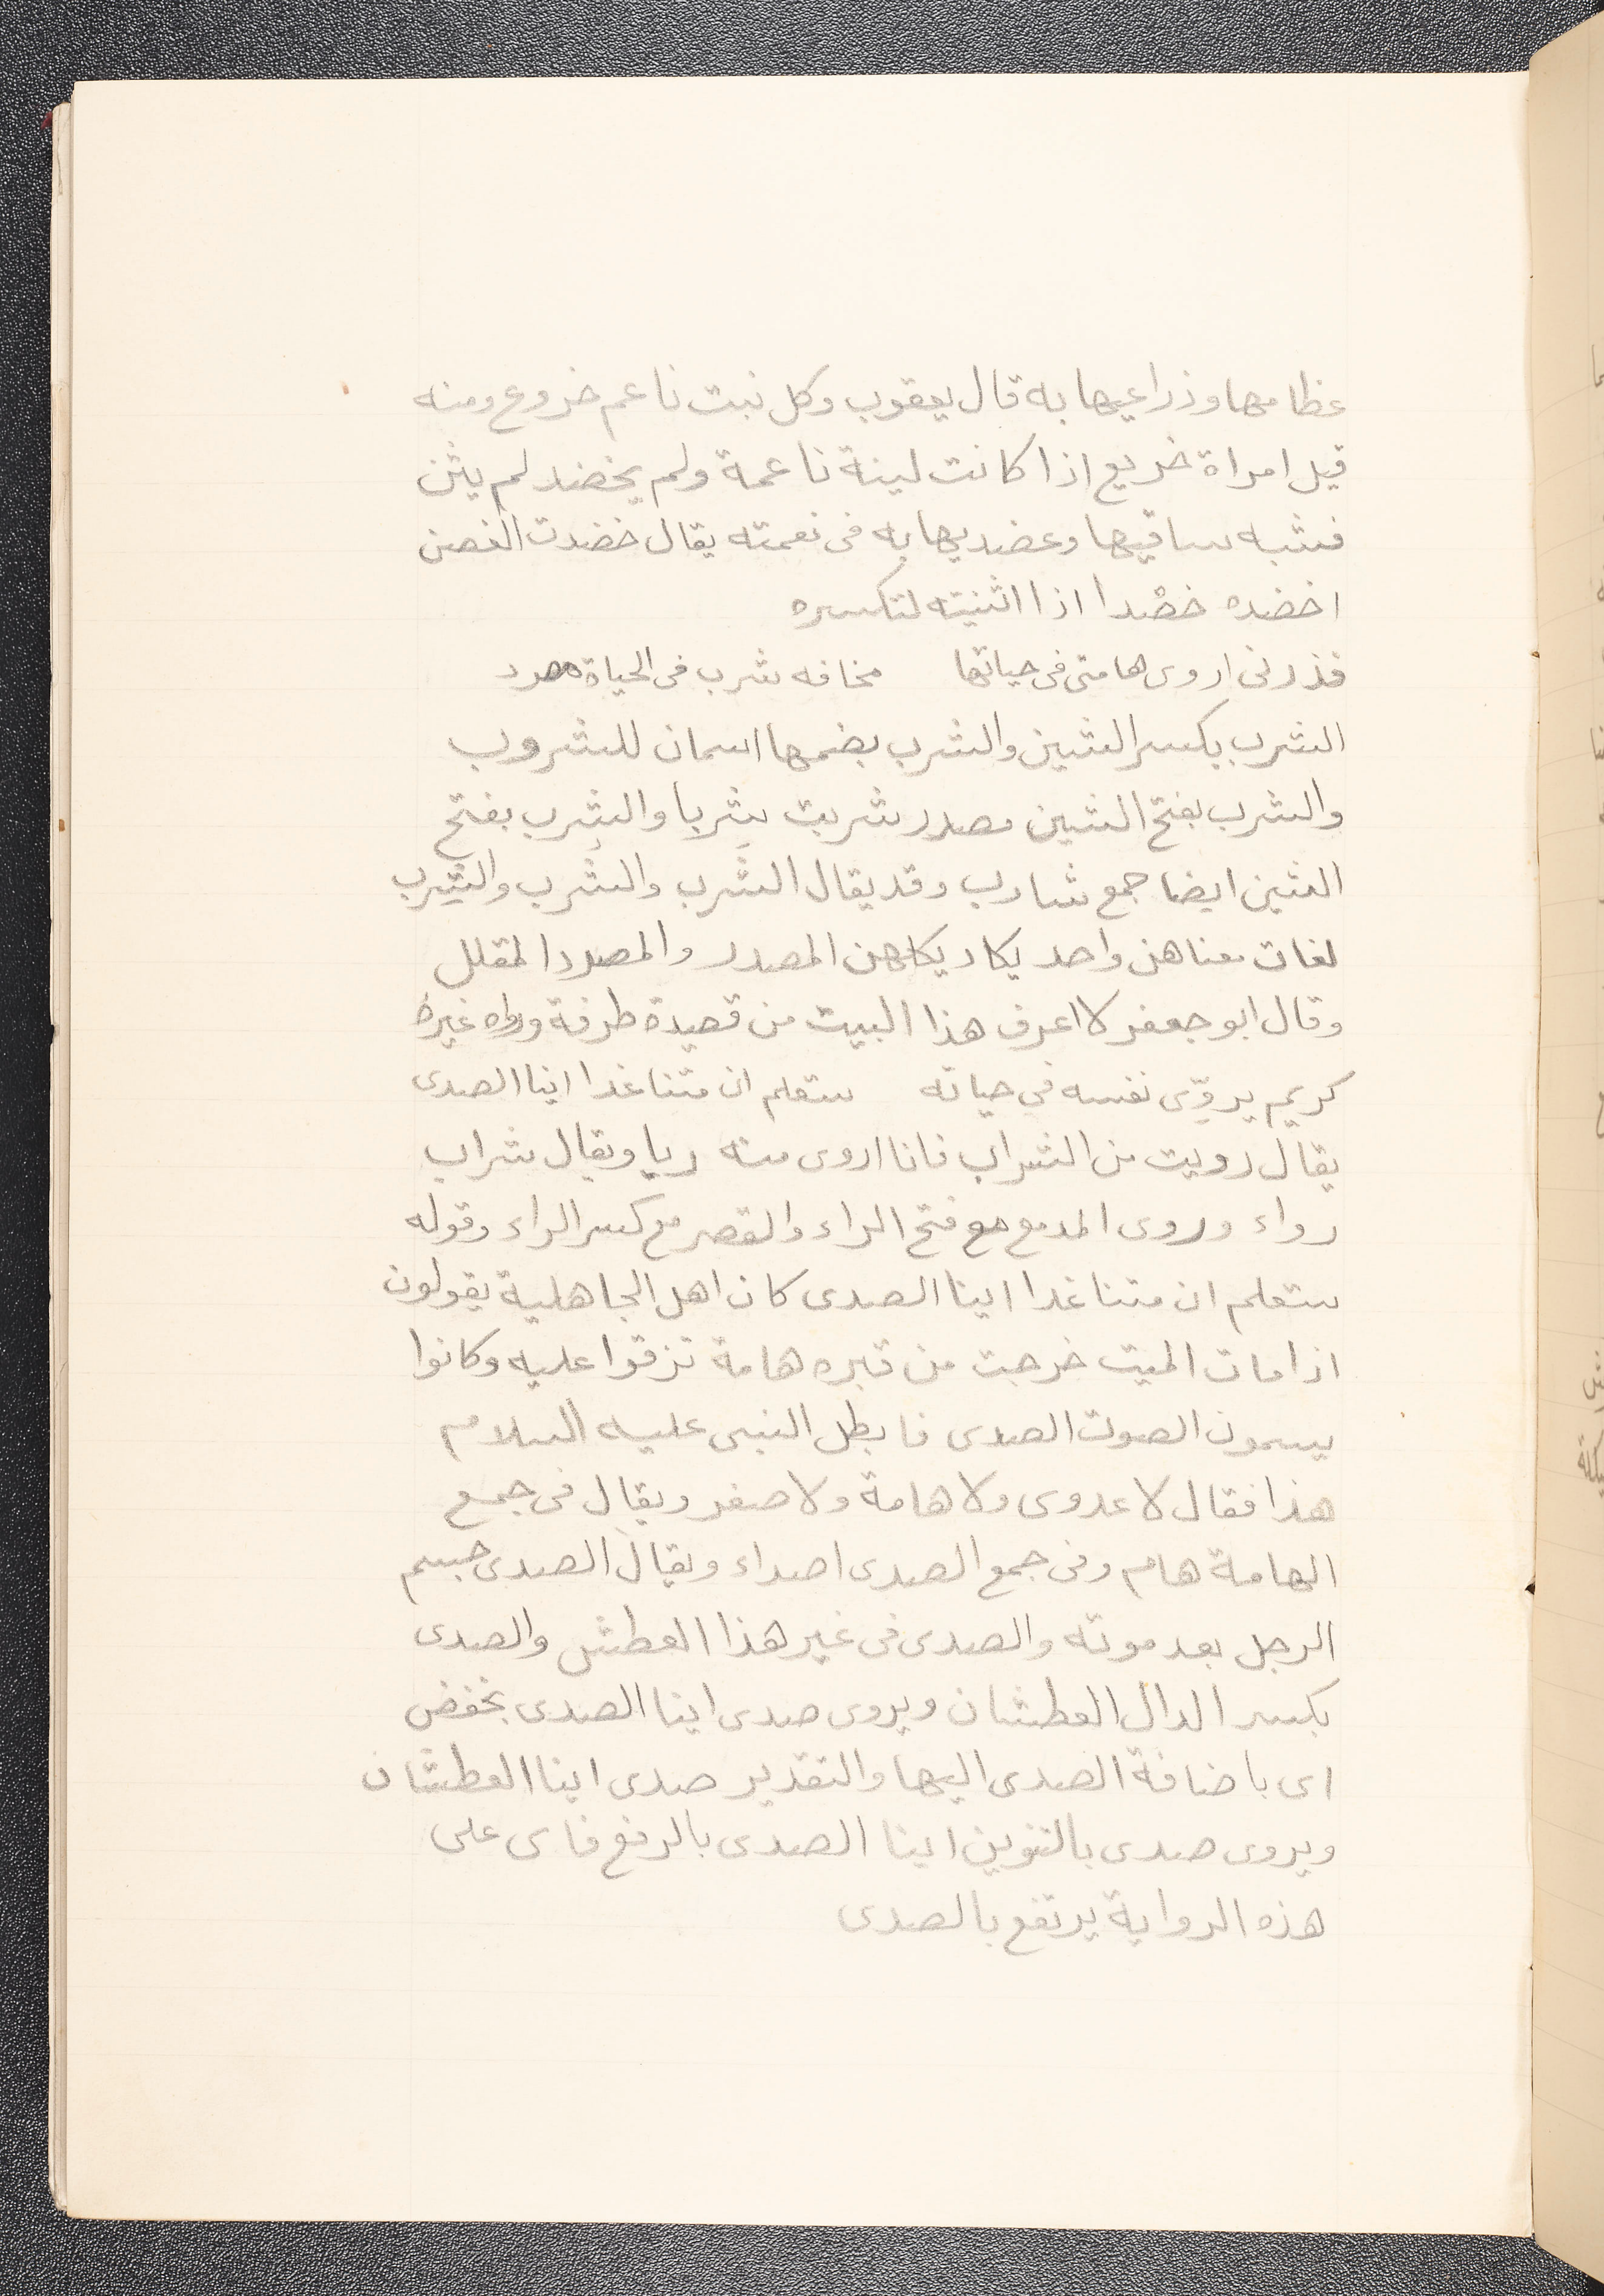 عظامها وذراعيها به قال يعقوب وكل نبت ناعم خروع ومنه
قيل امراة خريع اذا كانت لينة ناعمة ولم يخضد لم يثن
فشبه ساقيها وعضديها به فى نعمته يقال خضدت الغصن
اخضده خضدا اذا اثنيته لتكسره
فذرنى اروى هامتى فى حياتها مخافه شرب فى الحياة مصرد
الشرب بكسر الشين والشرب بضمها اسمان للشروب
والشرب بفتح الشين مصدر شربت شربا والشرب بفتح
الشين ايضا جمع شارب وقد يقال الشَرب والشُرب والشِرب
لغات معناهن واحد يكاد يكلهن المصدر والمصرد المقلل
وقال ابو جعفر لا اعرف هذا البيت من قصيدة طرفة ورواه غيره
كريم يروّى نفسه فى حياته ستعلم ان متنا غدا اينا الصدى
يقال رويت من الشراب فانا اروى منه ريا ويقال شراب
رواء وروى المد مع مع فتح الراء والقصر مع كسر الراء وقوله
ستعلم ان متنا غدا اينا الصدى كان اهل الجاهلية يقولون
اذا مات الميت خرجت من قبره هامة تزقوا عليه وكانوا
يسمون الصوت الصدى فابطل النبى عليه السلام
هذا فقال لا عدوى ولا هامة ولا صفر ويقال فى جمع
الهامة هام وفى جمع الصدى اصداء ويقال الصدى جسم
الرجل بعد موته والصدى فى غير هذا العطش والصدى
بكسر الدال العطشان ويروى صدى اينا الصدى بخفض
اى باضافة الصدى اليها والتقدير صدى اينا العطشان
ويروى صدى بالتنوين اينا الصدى بالرفع فاى على
هذه الرواية يرتفع بالصدى